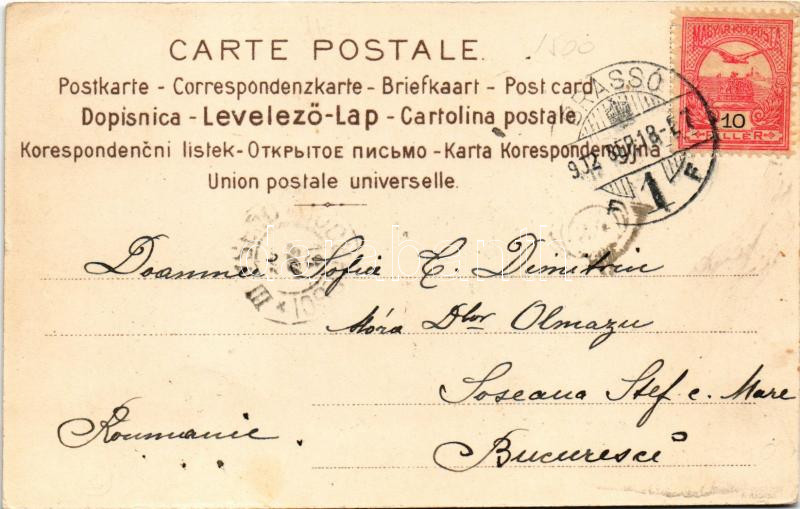 1500
CARTE POSTALE.
Postkarte - Correspondenzkarte - Briefkaart - Post card
Dopisnica - Levelező-Lap - Cartolina postale
Korespondenční listek - Открытое письмо - Karta Korespondencyjna
Union postale universelle.
MAGYAR KIR. POSTA
10
FILLÉR
BRASSÓ
912 SEP. 18
1
F
Doamnei Sofie C. Dimitriu
Móra Dlor Olmazu
Soseaua Stef. c. Mare
Roumanie.
Bucuresci